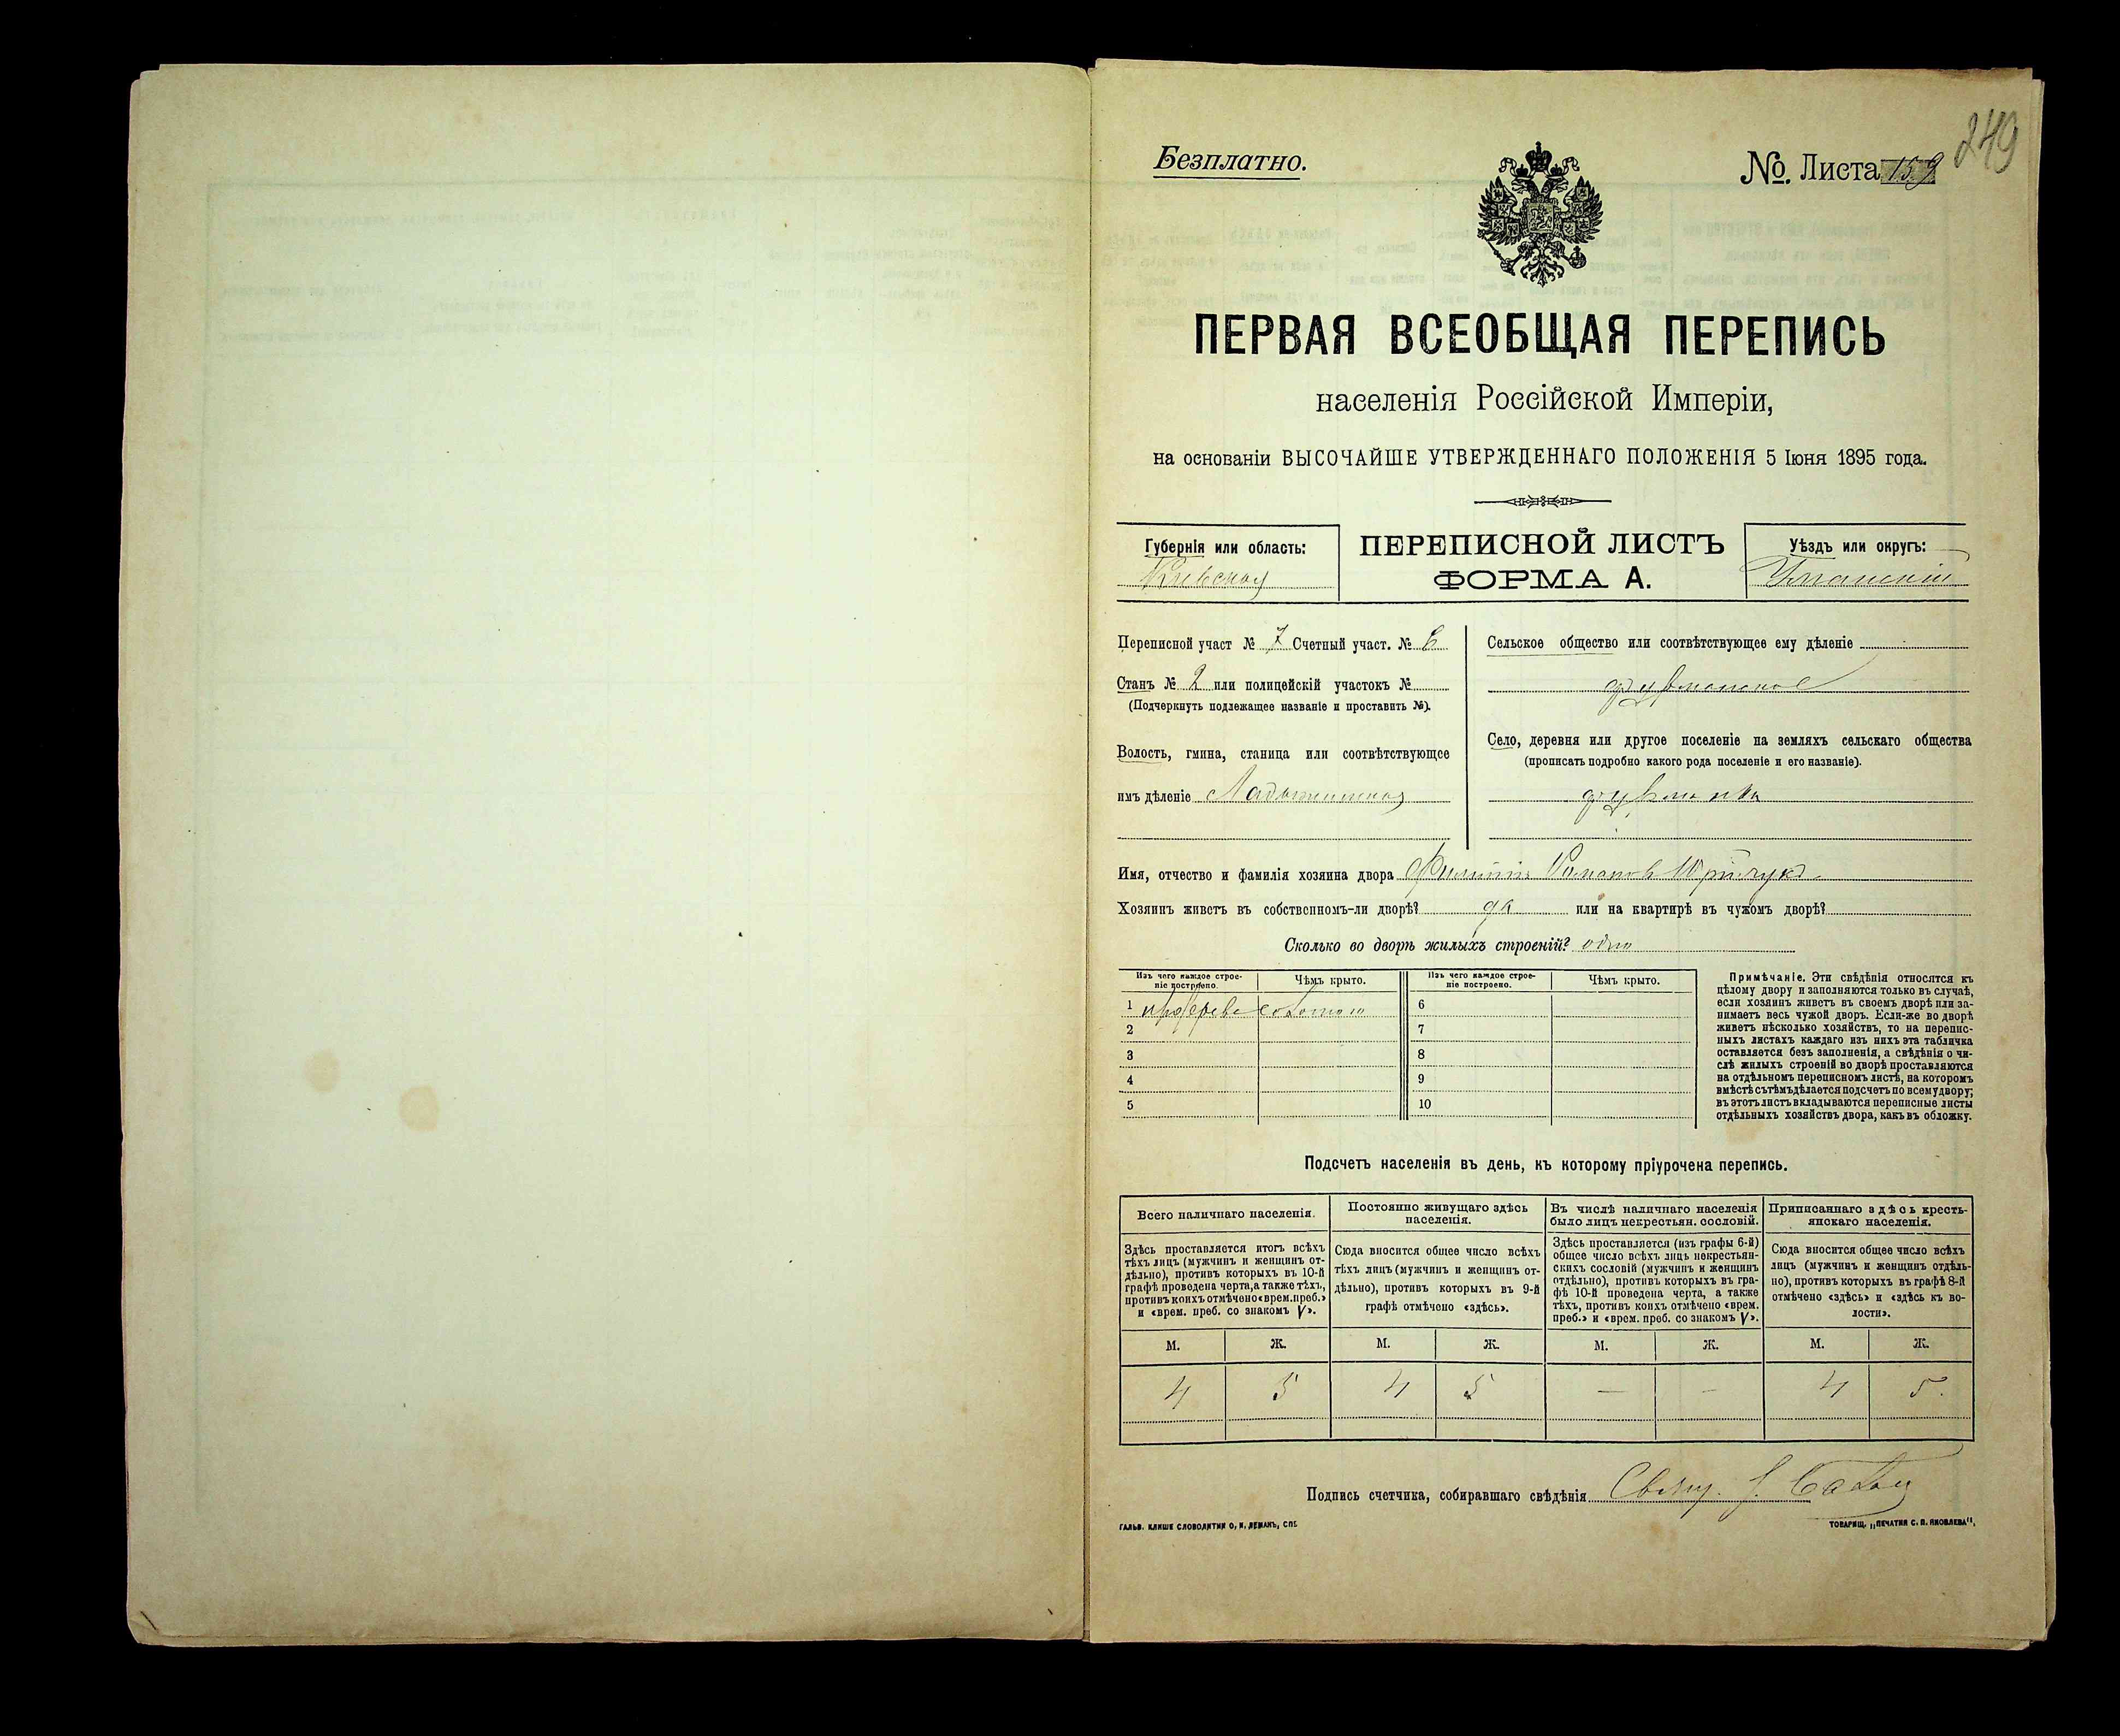 249
Безплатно.
№. Листа 159
ПЕРВАЯ ВСЕОБЩАЯ ПЕРЕПИСЬ
населенія Россійской Имперіи,
на основаніи ВЫСОЧАЙШЕ УТВЕРЖДЕННАГО ПОЛОЖЕНІЯ 5 Іюня 1895 года.
Губернія или область:
Кіевская
ПЕРЕПИСНОЙ ЛИСТЪ
ФОРМА А.
Уѣздъ или округъ:
Уманскій
Переписной участ № 7 Счетный участ. № 6
Станъ № 2 или полицейскій участокъ №
(Подчеркнуть подлежащее названіе и проставить №).
Волость, гмина, станица или соотвѣтствующее
имъ дѣленіе Ладыжинская
Сельское общество или соотвѣтствующее ему дѣленіе
Село, деревня или другое поселеніе на земляхъ сельскаго общества
(прописать подробно какого рода поселеніе и его названіе).
Имя, отчество и фамилія хозяина двора Филиппъ Романовъ
Хозяинъ живетъ въ собственномъ-ли дворѣ? да или на квартирѣ въ чужомъ дворѣ?
Сколько во дворѣ жилыхъ строеній? одно
Изъ чего каждое строе-
ніе построено.
Чѣмъ крыто.
Изъ чего каждое строе-
ніе построено.
Чѣмъ крыто.
1 соломою 6
2 7
3 8
4 9
5 10
Примѣчаніе. Эти свѣдѣнія относятся къ
цѣлому двору и заполняются только въ случаѣ,
если хозяинъ живетъ въ своемъ дворѣ или за-
нимаетъ весь чужой дворъ. Если-же во дворѣ
живетъ нѣсколько хозяйствъ, то на перепис-
ныхъ листахъ каждаго изъ нихъ эта табличка
оставляется безъ заполненія, а свѣдѣнія о чи-
слѣ жилыхъ строеній во дворѣ проставляются
на отдѣльномъ переписномъ листѣ, на которомъ
вмѣстѣ съ тѣмъ дѣлается подсчетъ по всему двору;
въ этотъ листъ вкладываются переписные листы
отдѣльныхъ хозяйствъ двора, какъ въ обложку.
Подсчетъ населенія въ день, къ которому пріурочена перепись.
Всего наличнаго населенія.
Здѣсь проставляется итогъ всѣхъ
тѣхъ лицъ (мужчинъ и женщинъ от-
дѣльно), противъ которыхъ въ 10-й
графѣ проведена черта, а также тѣхъ,
противъ коихъ отмѣчено «врем. преб.»
и «врем. преб. со знакомъ V».
Постоянно живущаго здѣсь
населенія.
Сюда вносится общее число всѣхъ
тѣхъ лицъ (мужчинъ и женщинъ от-
дѣльно), противъ которыхъ въ 9-й
графѣ отмѣчено «здѣсь».
Въ числѣ наличнаго населенія
было лицъ некрестьян. сословій.
Здѣсь проставляется (изъ графы 6-й)
общее число всѣхъ лицъ некрестьян-
скихъ сословій (мужчинъ и женщинъ
отдѣльно), противъ которыхъ въ гра-
фѣ 10-й проведена черта, а также
тѣхъ, противъ коихъ отмѣчено «врем.
преб.» и «врем. преб. со знакомъ V».
Приписаннаго здѣсь кресть-
янскаго населенія.
Сюда вносится общее число всѣхъ
лицъ (мужчинъ и женщинъ отдѣль-
но), противъ которыхъ въ графѣ 8-й
отмѣчено «здѣсь» и «здѣсь къ во-
лости».
М. Ж. М. Ж. М. Ж. М. Ж.
4 5 4 5 — — 4 5.
Подпись счетчика, собиравшаго свѣдѣнія
ГАЛЬВ. КЛИШЕ СЛОВОЛИТНИ О. И. ЛЕМАНЪ, СПБ.
ТОВАРИЩ. „ПЕЧАТНЯ С. П. ЯКОВЛЕВА“.